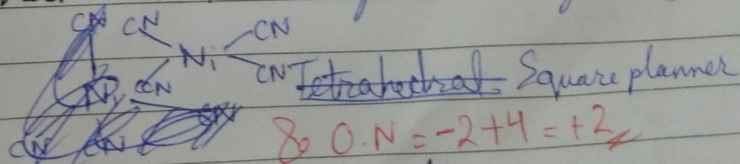 CN CN
Ni CN
CN CN Tetrahedral Square planner
& O.N = -2+4 = +2